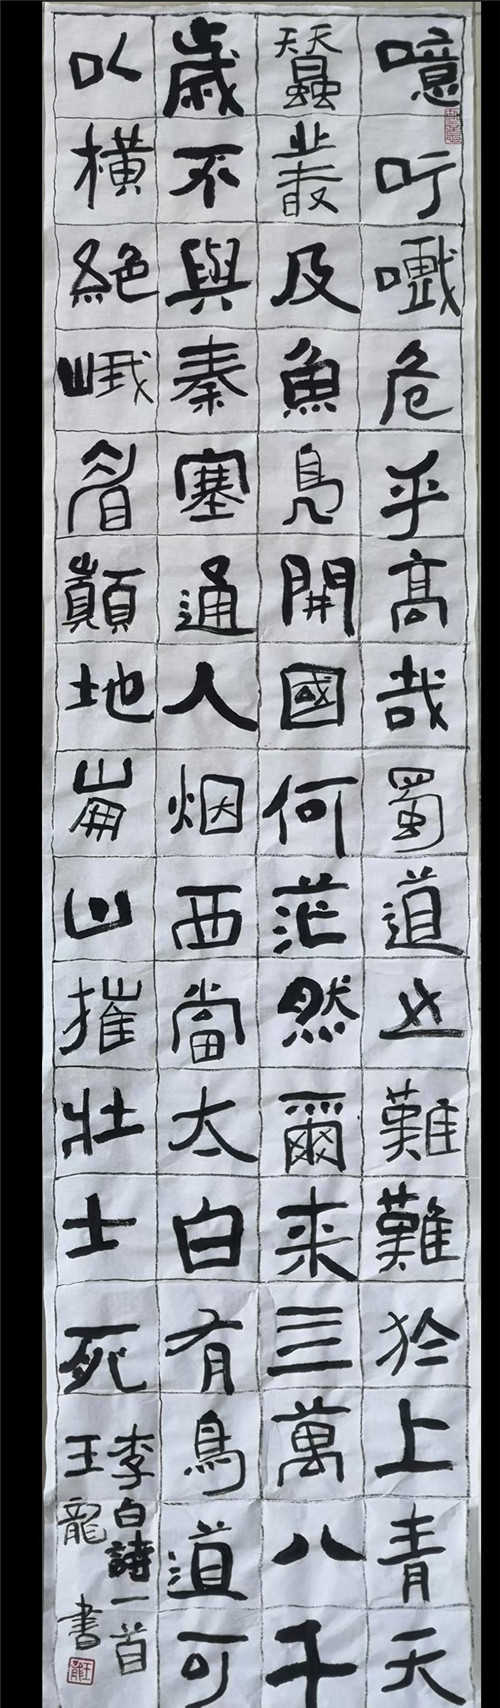 噫吁嚱危乎髙哉蜀道之難難於上青天
蠶叢及魚鳧開國何茫然爾来三萬八千
歲不與秦塞通人烟西當太白有鳥道可
以橫絕峨眉巔地崩山摧壯士死
李白詩一首
王龍書